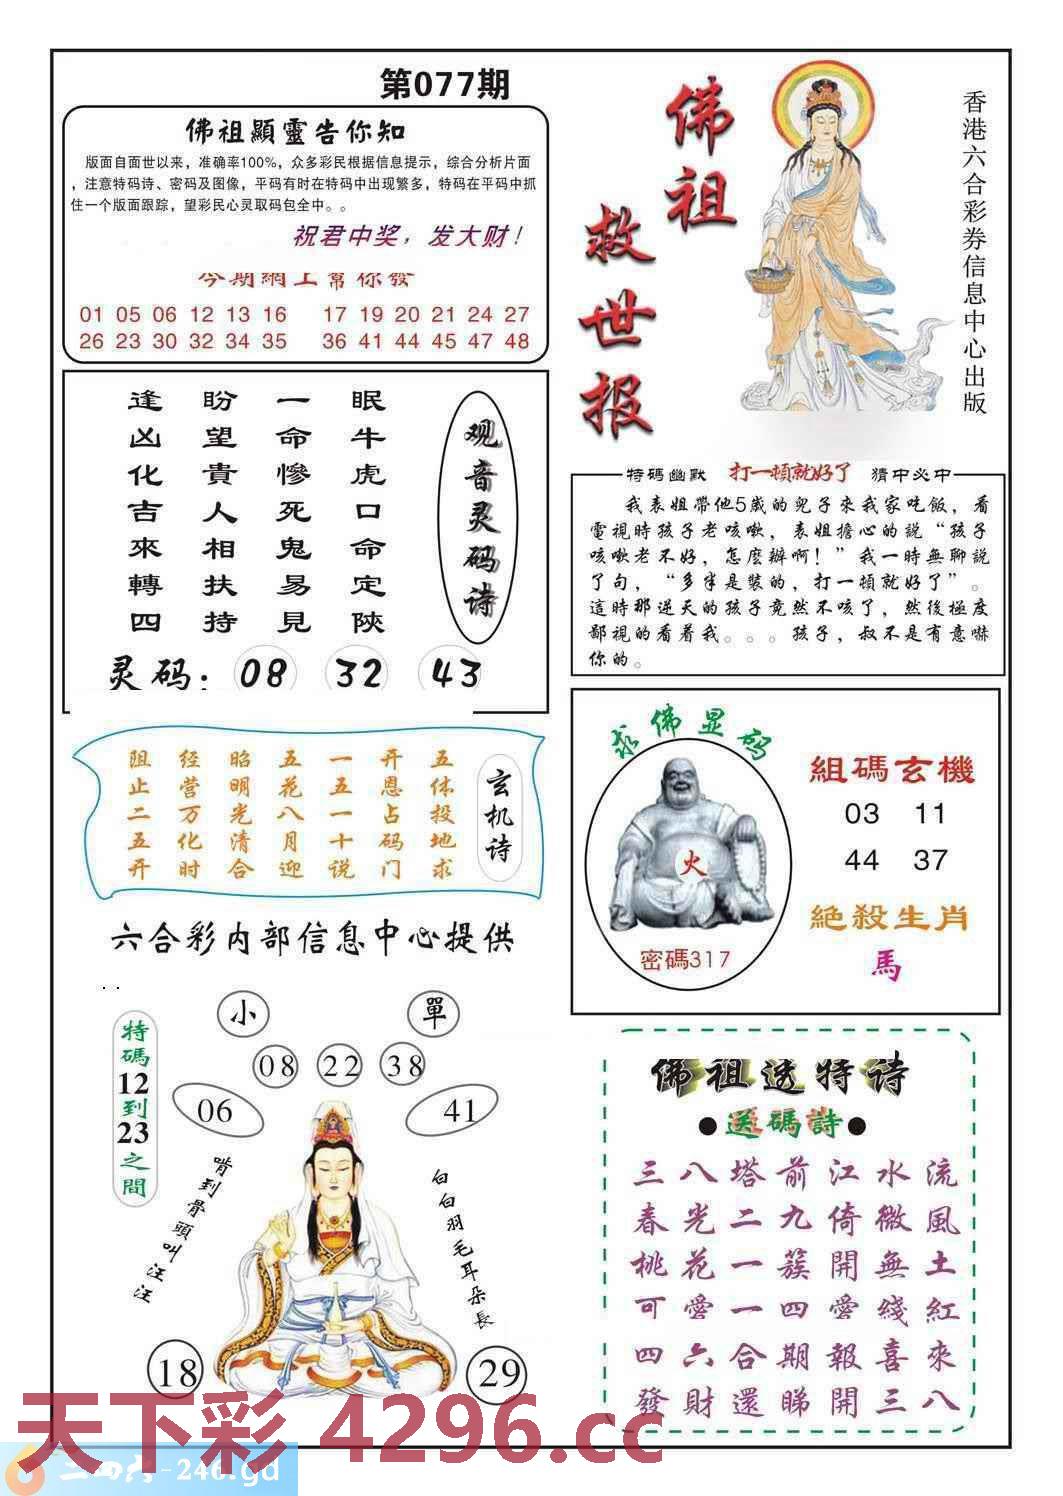 第077期
佛祖顯靈告你知
版面自面世以来，准确率100%，众多彩民根据信息提示，综合分析片面
，注意特码诗、密码及图像，平码有时在特码中出现繁多，特码在平码中抓
住一个版面跟踪，望彩民心灵取码包全中。。
祝君中奖，发大财！
今期網上幫你發
01 05 06 12 13 16 17 19 20 21 24 27
26 23 30 32 34 35 36 41 44 45 47 48
佛祖
救世报
香港六合彩券信息中心出版
观音灵码诗
眠牛虎口命定陝
一命慘死鬼易見
盼望貴人相扶持
逢凶化吉來轉四
灵码：08 32 43
特碼幽默 打一頓就好了 猜中必中
我表姐帶他5歲的兒子來我家吃飯，看
電視時孩子老咳嗽，表姐擔心的說“孩子
咳嗽老不好，怎麼辦啊！”我一時無聊説
了句，“多半是裝的，打一頓就好了”。
這時那逆天的孩子竟然不咳了，然後極度
鄙視的看着我。。。孩子，叔不是有意嚇
你的。
玄机诗
五体投地求
开恩占码门
一五一十说
五花八月迎
昭明光清合
经营万化时
阻止二五开
求佛显码
火
密碼317
組碼玄機
03 11
44 37
絕殺生肖
馬
六合彩内部信息中心提供
小 單
08 22 38
06 41
特碼12到23之間
啃到骨頭叫汪汪
白白羽毛耳朵長
18 29
佛祖透特诗
●送碼詩●
三八塔前江水流
春光二九倚微風
桃花一簇開無土
可愛一四愛綫紅
四六合期報喜來
發財還睇開三八
天下彩 4296.cc
二四六-246.gd